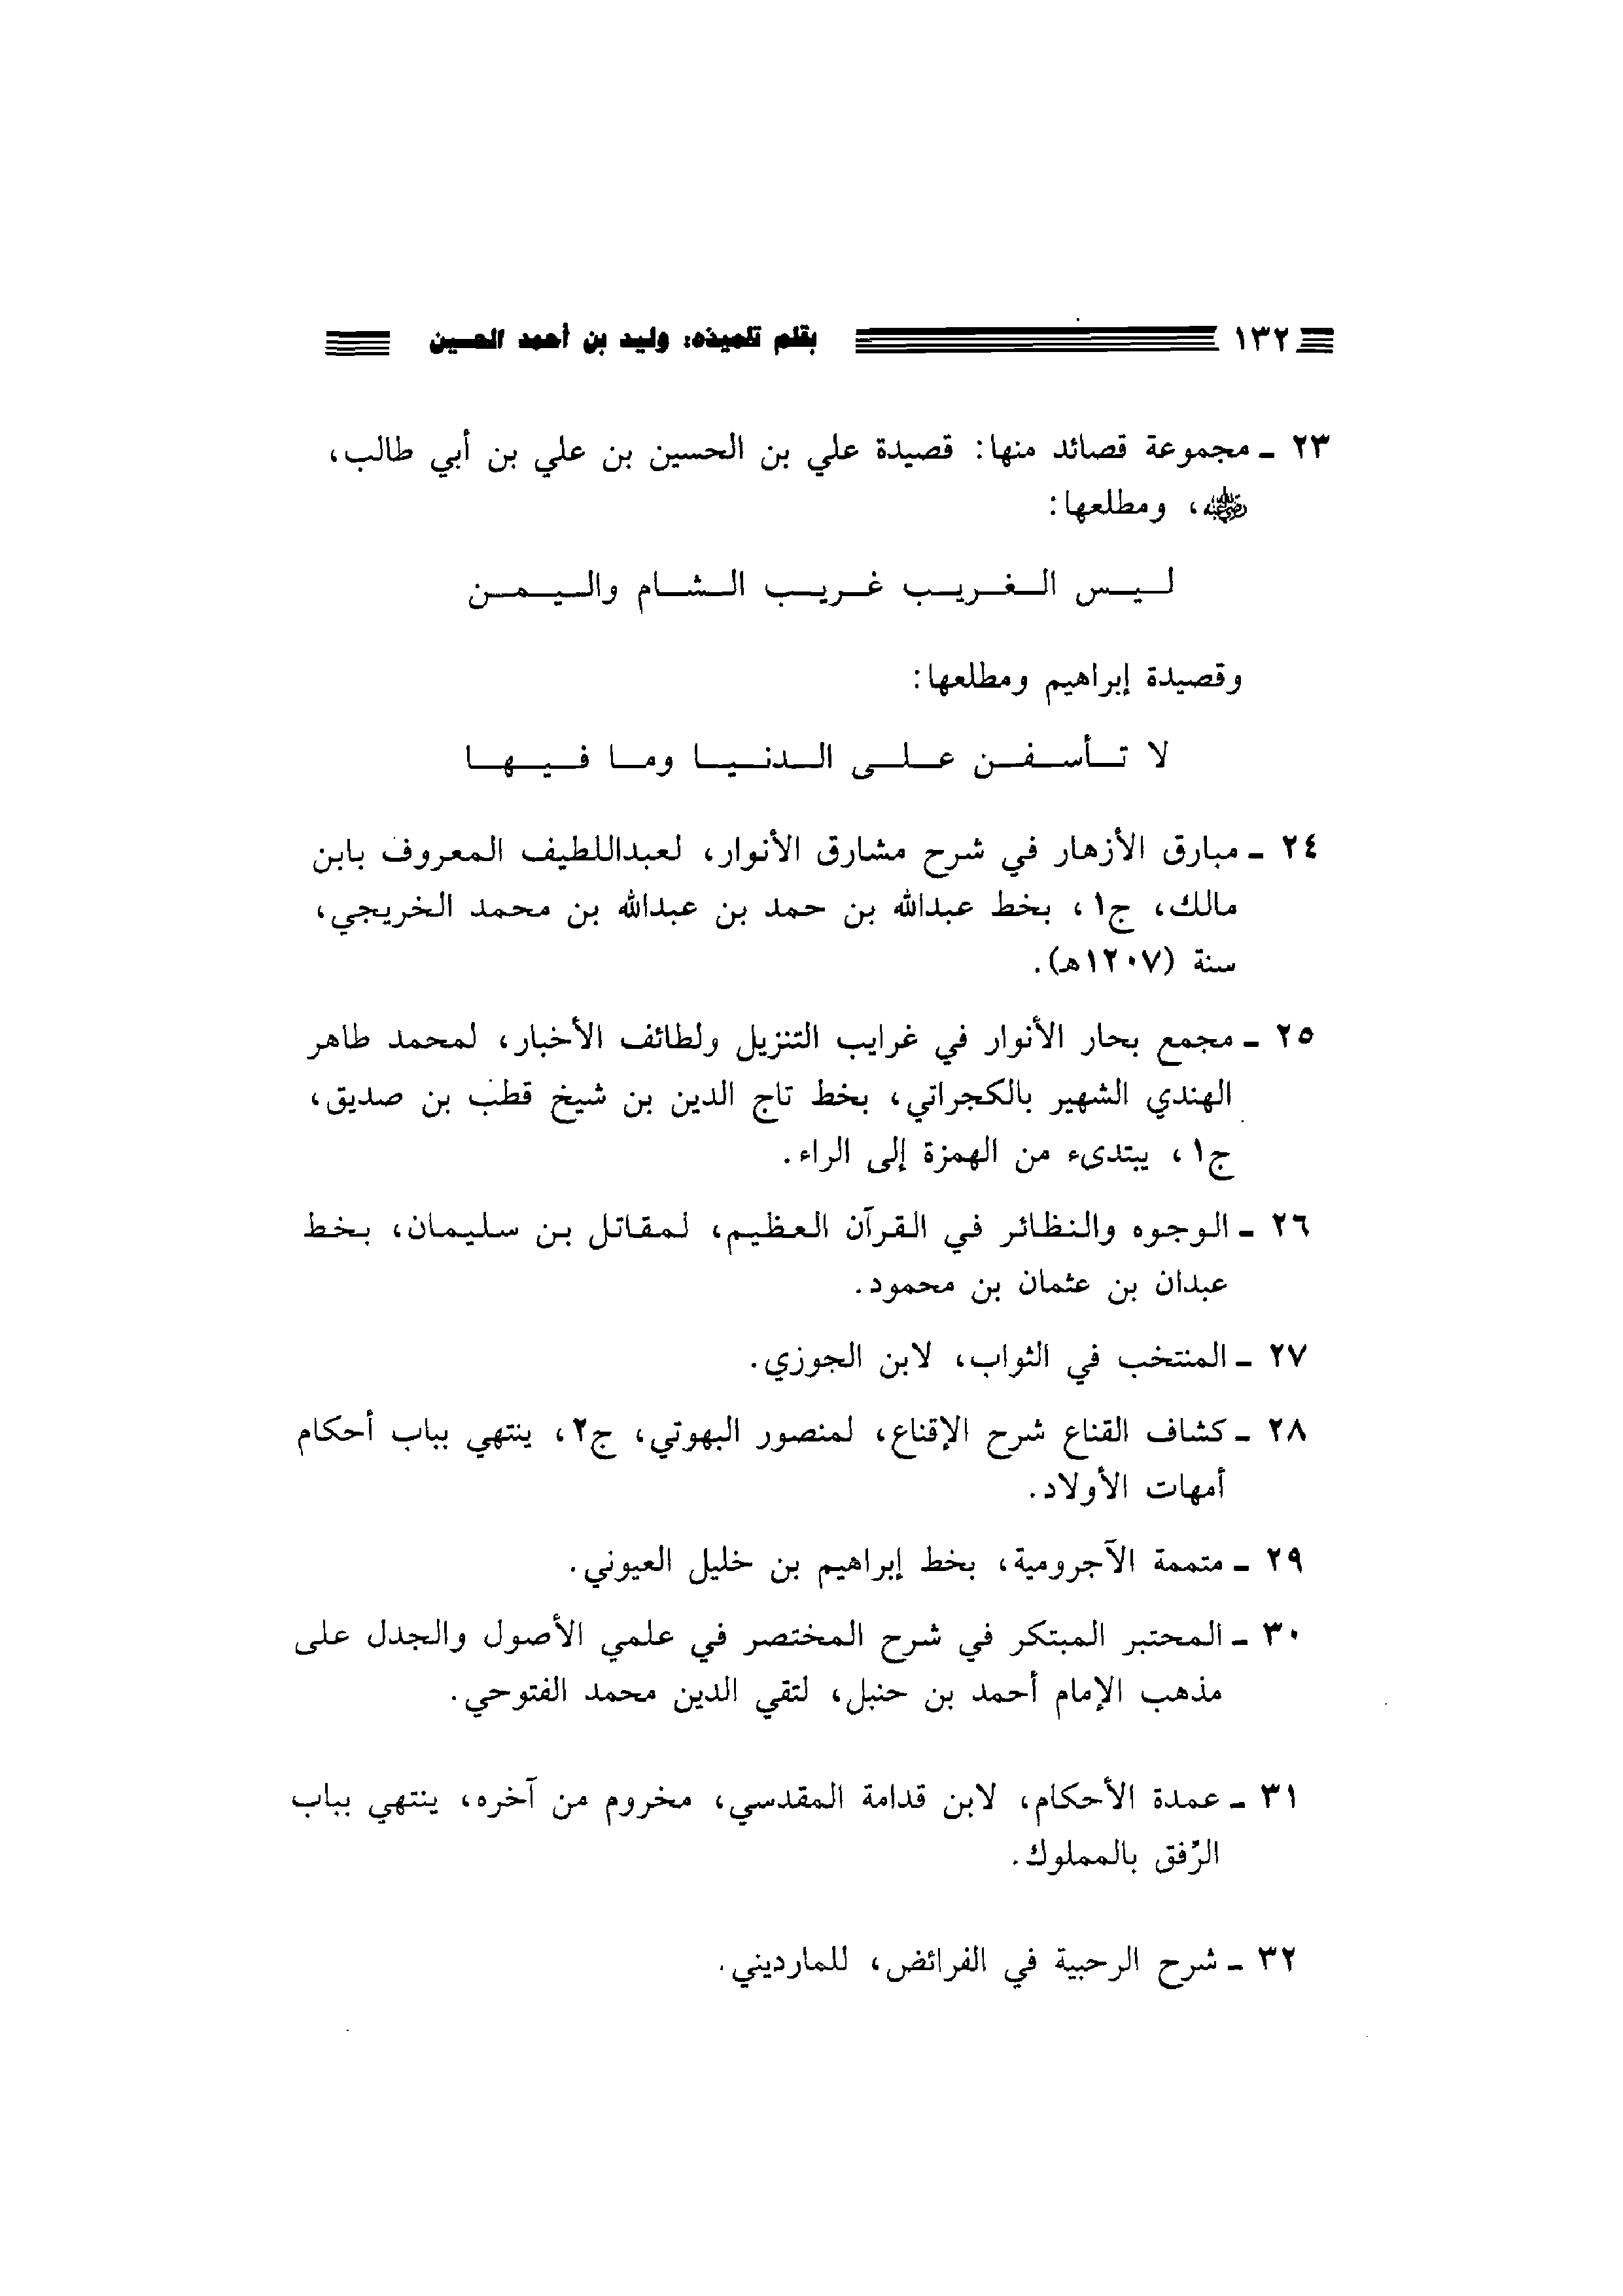 ١٣٢ بقلم تلميذه: وليد بن أحمد الحسين
٢٣ ـ مجموعة قصائد منها: قصيدة علي بن الحسين بن علي بن أبي طالب،
رضي الله عنه، ومطلعها:
لـيـس الـغـريـب غـريـب الـشـام والـيـمـن
وقصيدة إبراهيم ومطلعها:
لا تـأسـفـن عـلـى الـدنـيـا ومـا فـيـهـا
٢٤ ـ مبارق الأزهار في شرح مشارق الأنوار، لعبداللطيف المعروف بابن
مالك، ج١، بخط عبدالله بن حمد بن عبدالله بن محمد الخريجي،
سنة (١٢٠٧هـ).
٢٥ ـ مجمع بحار الأنوار في غرايب التنزيل ولطائف الأخبار، لمحمد طاهر
الهندي الشهير بالكجراتي، بخط تاج الدين بن شيخ قطب بن صديق،
ج١، يبتدىء من الهمزة إلى الراء.
٢٦ ـ الوجوه والنظائر في القرآن العظيم، لمقاتل بن سليمان، بخط
عبدان بن عثمان بن محمود.
٢٧ ـ المنتخب في الثواب، لابن الجوزي.
٢٨ ـ كشاف القناع شرح الإقناع، لمنصور البهوتي، ج٢، ينتهي بباب أحكام
أمهات الأولاد.
٢٩ ـ متممة الآجرومية، بخط إبراهيم بن خليل العيوني.
٣٠ ـ المحتبر المبتكر في شرح المختصر في علمي الأصول والجدل على
مذهب الإمام أحمد بن حنبل، لتقي الدين محمد الفتوحي.
٣١ ـ عمدة الأحكام، لابن قدامة المقدسي، مخروم من آخره، ينتهي بباب
الرِّفق بالمملوك.
٣٢ ـ شرح الرحبية في الفرائض، للمارديني.